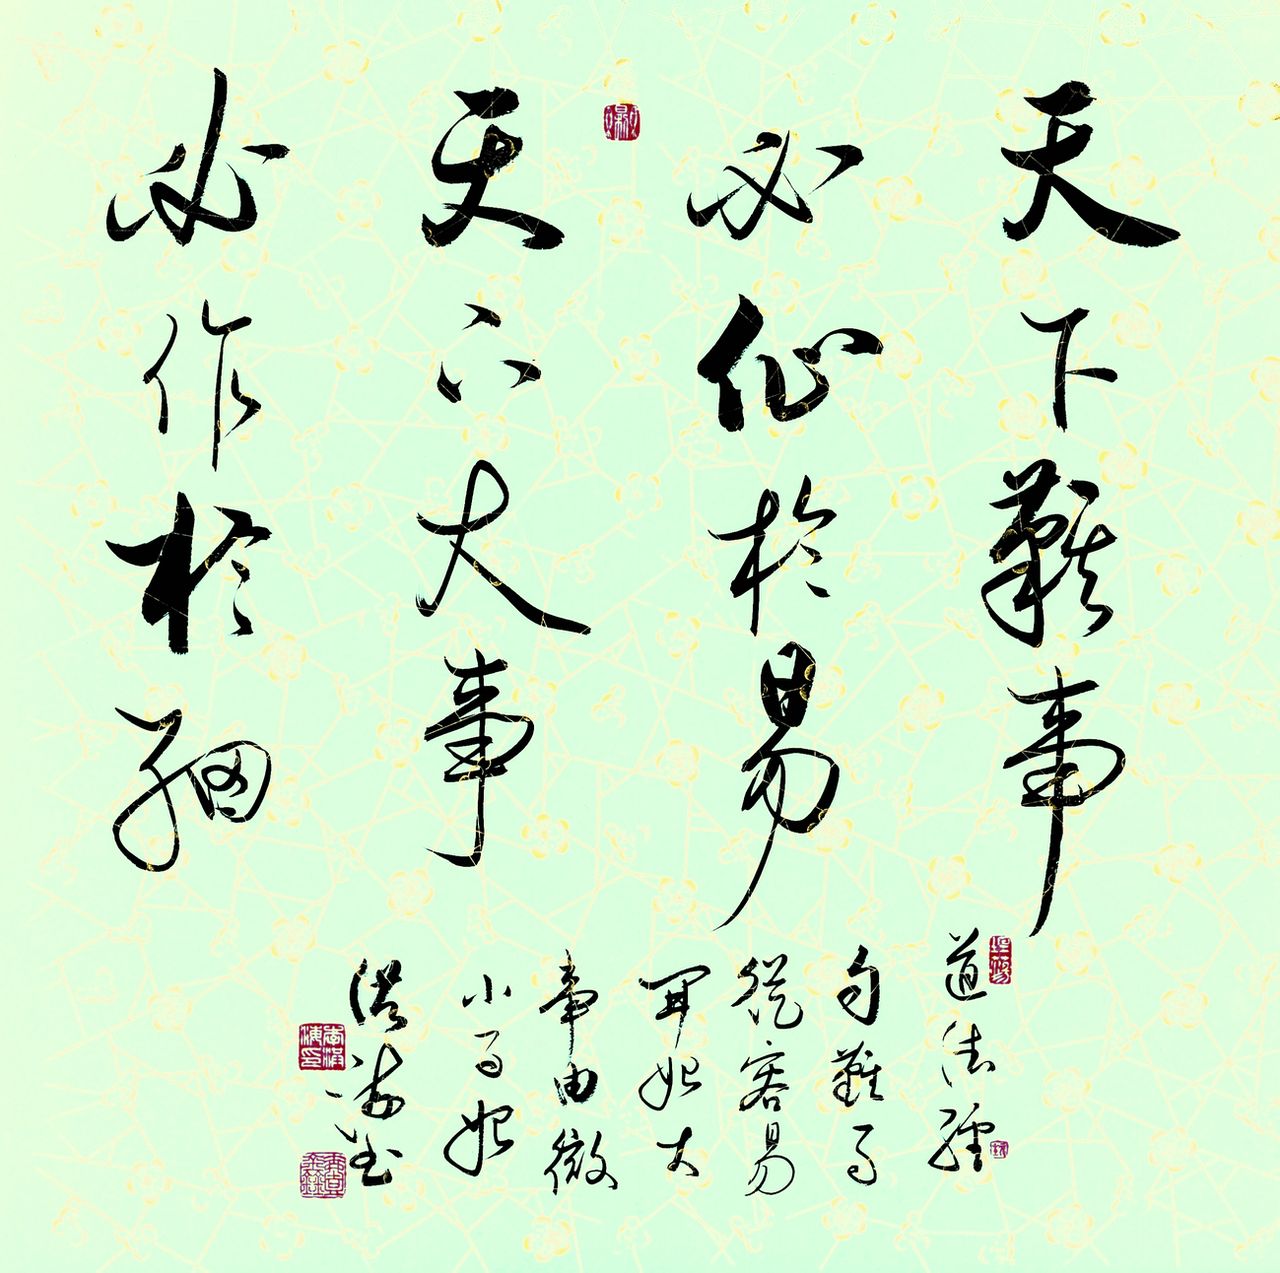 天下難事
必作於易
天下大事
必作於細
道德經
句難事
從容易
開始大
事由微
小而始
洪海書